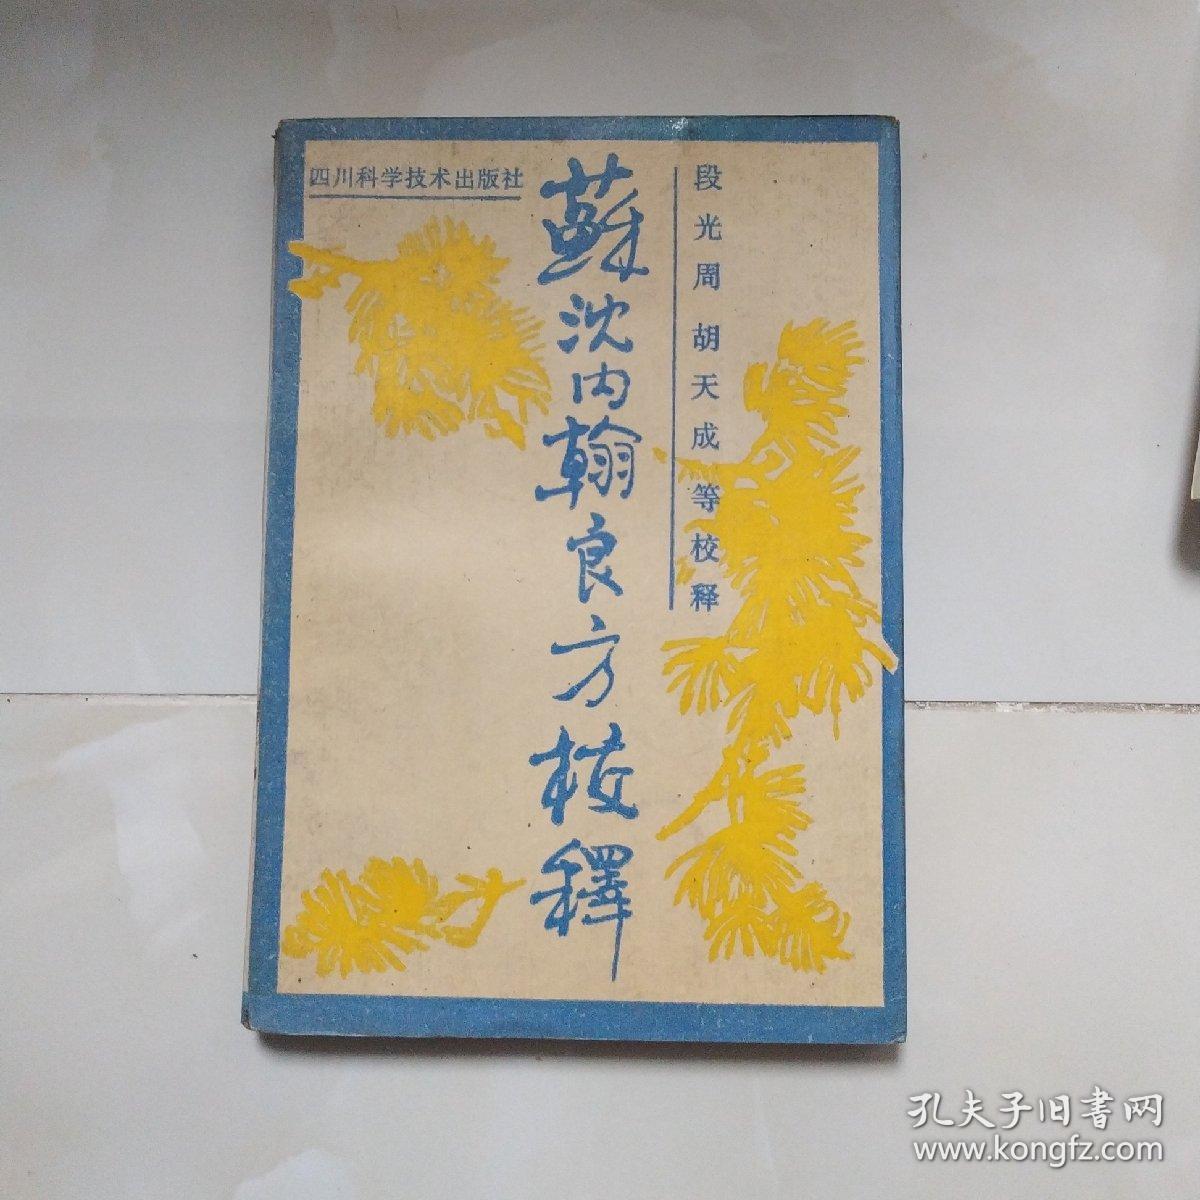 段光周 胡天成等校释
蘇沈内翰良方校釋
四川科学技术出版社
孔夫子旧書网
www.kongfz.com